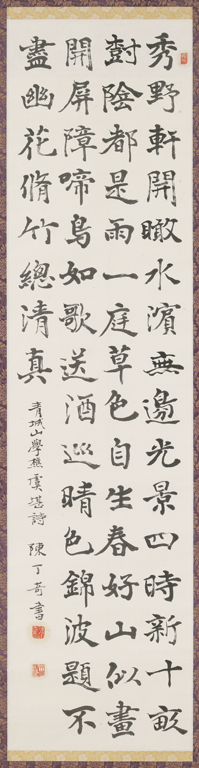 秀野軒開瞰水濱無邊光景四時新十畝
尌陰都是雨一庭草色自生春好山似畫
開屏障啼鳥如歌送酒巡晴色錦波題不
盡幽花脩竹總清真
青城山學樵虞堪詩 陳丁奇書